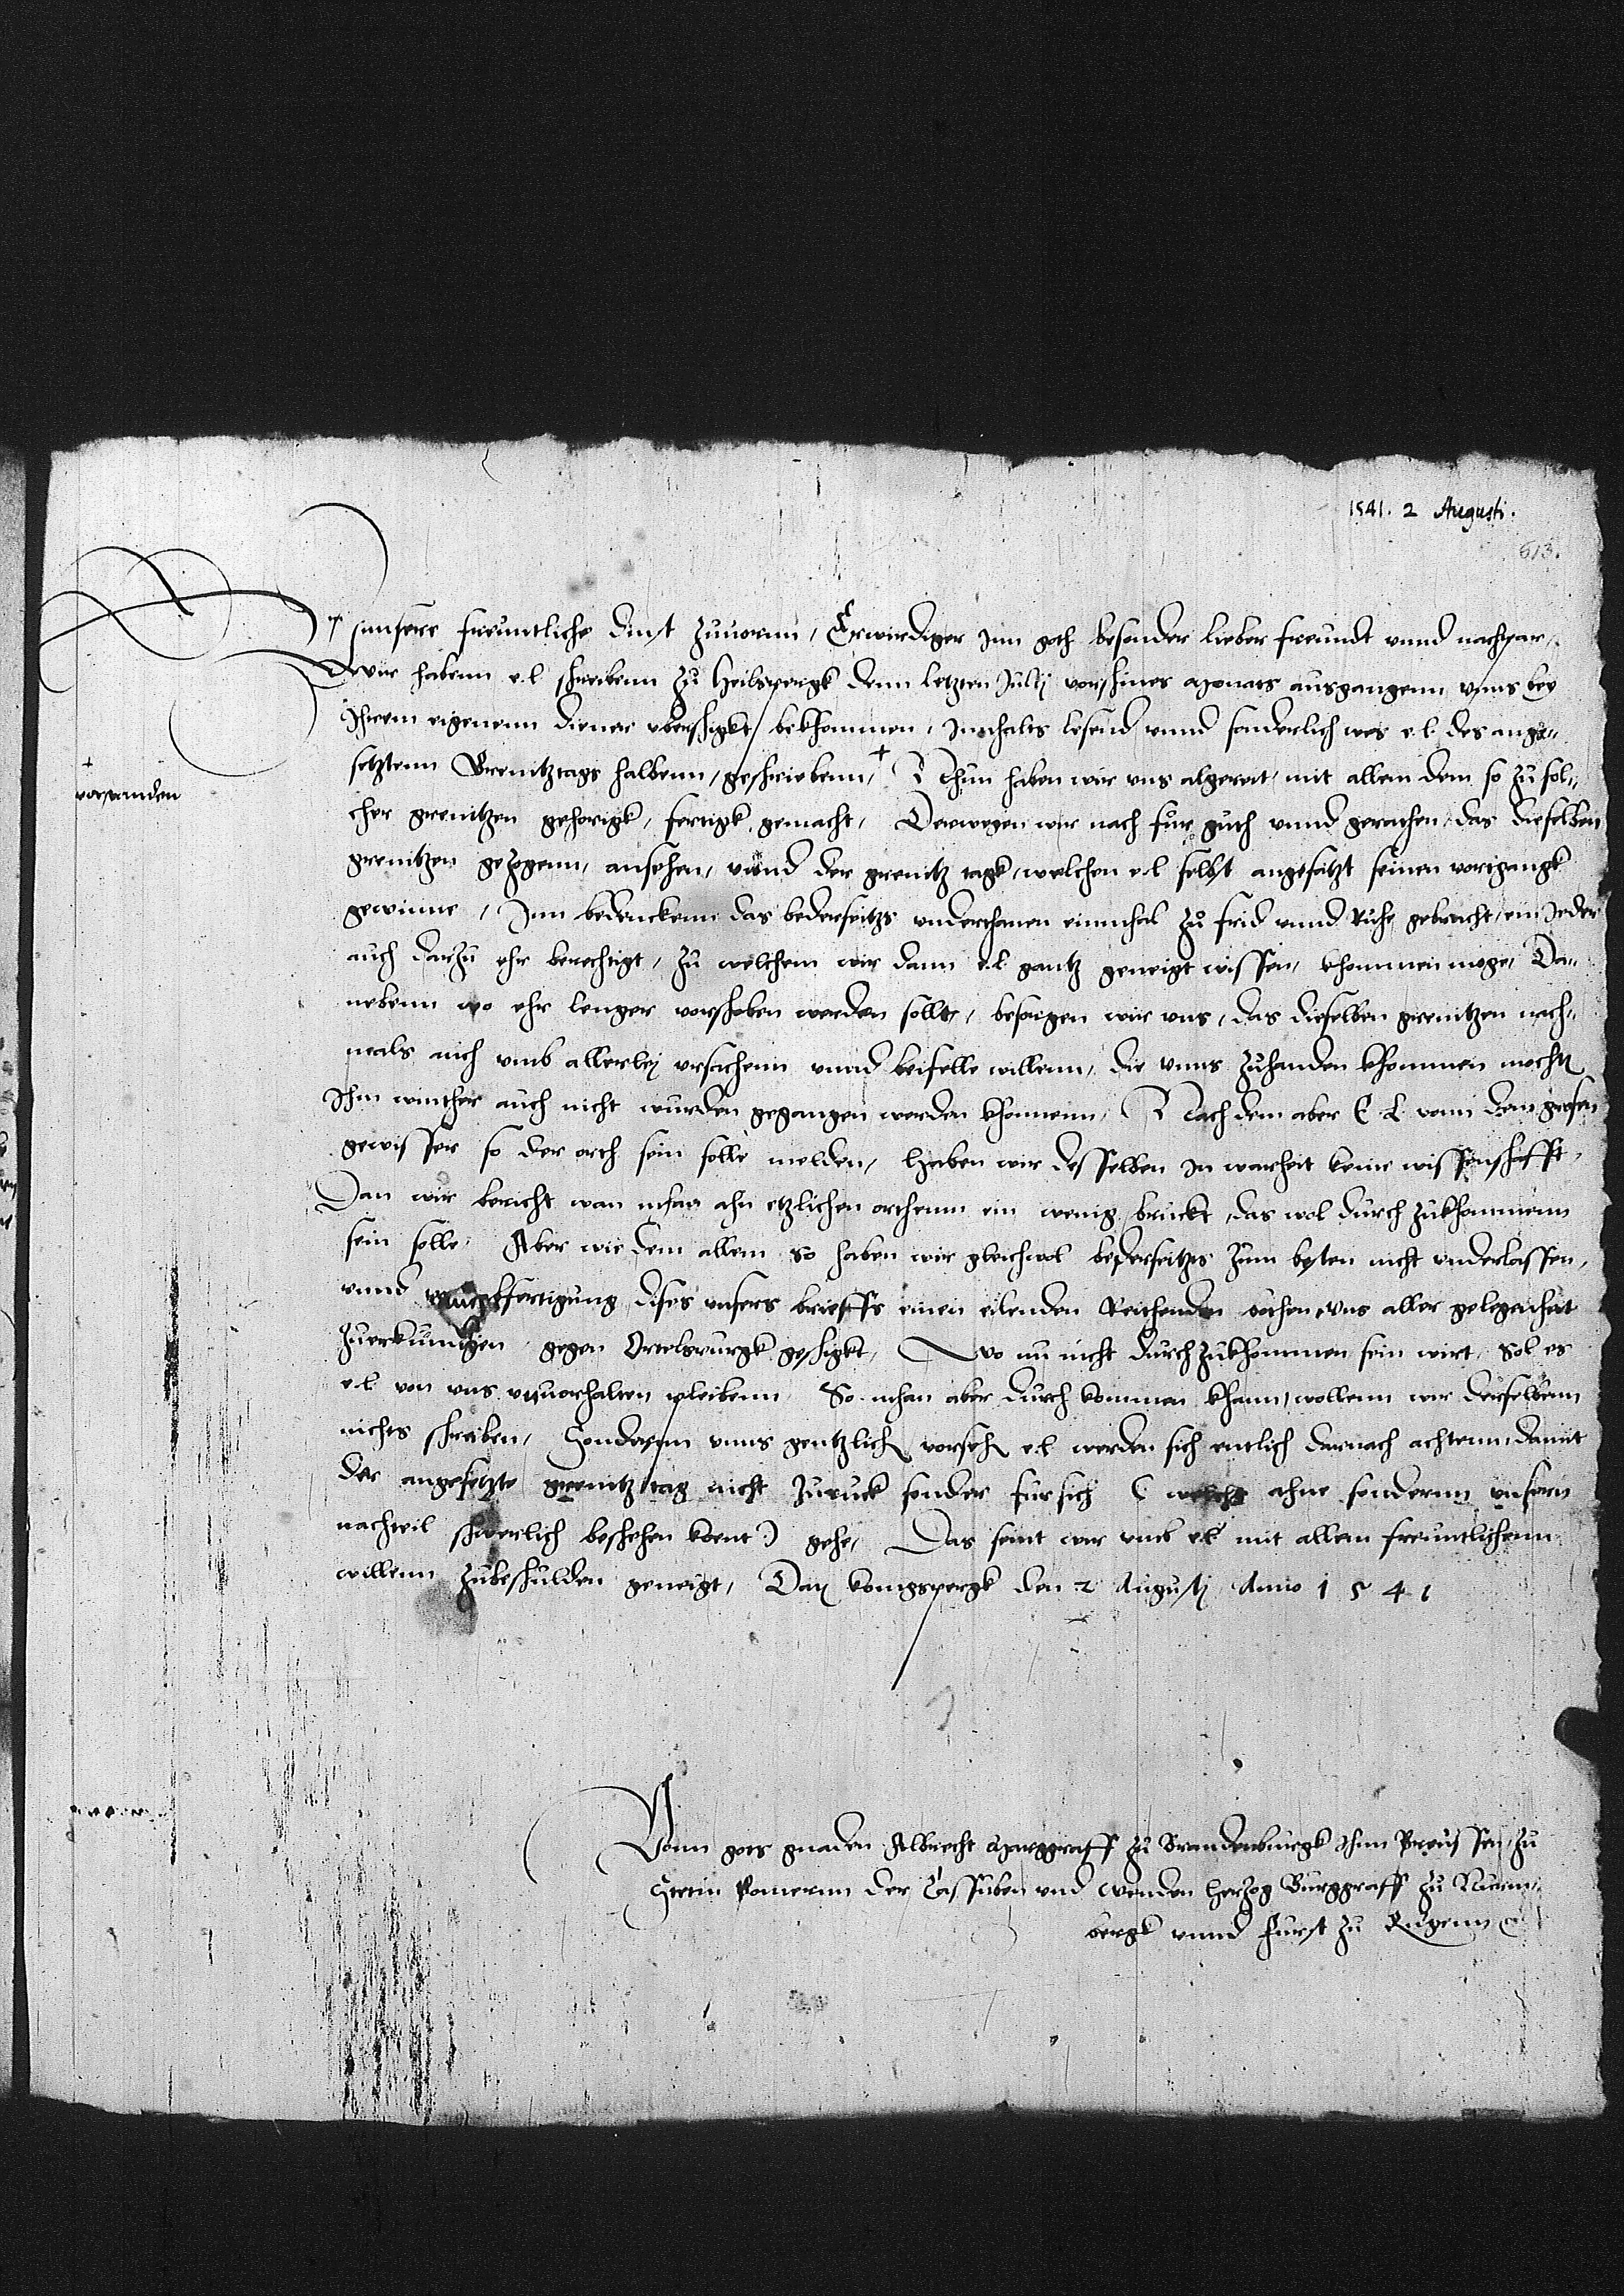 1541. 2 Augusti.
613.
Vnnsere freuntliche dinst zuuornn, Erwirdiger Inn goth besonder lieber freundt vnnd nachpar,
wir habenn e.l. schreibenn zu Heilspergk denn letzten Julij vorschines Monats ausgangenn vnns bey
Ihrem eigenenn diener vberschigkt bekhommen, Innhalts lesend vnnd sonderlich was e.l. des ange-
setztenn Grenitztags halbenn, geschriebenn, + Nhun haben wir vns algereit, mit allem dem so zu sol-
+
vorstanden
cher grenitzen gehorigk, fertigk gemacht, Derwegen wir nach fur guth vnnd gerathen, das dieselben
grenitzen gezogenn, ansehen, vnnd der grenitz tagk, welchen e.l. selbst angesatzt seinen vortgangk
gewinne, Inn bedenckenn das bederseitzs vnderthanen einmhal zu frid vnnd Ruhe gebracht, ein Jeder
auch darzu ehr berechtigt, zu welchem wir dann e.l. gantz geneigt wissen, khommen moge, Da-
nebenn wo ehr lenger vorschoben werden sollte, besorgen wir vns, das dieselben grenitzen nach-
mals auch vmb allerlej vrsachenn vnnd beifelle willenn, die vnns zuhanden khommen mochten
Ihm winther auch nicht wurden gegangen werden khonnenn, Nach dem aber E. L. vonn dem grosen
gewisser so der orth sein solle melden, haben wir desselben in warheit keine wissenschafft,
Dan wir bericht wan mhan ahn etzlichen orthenn ein wenig bruckt, das wol durch zukhommenn
sein solle, Aber wie dem allem so haben wir gleichwol bederseitzs zum besten nicht vnderlassen,
vnnd fertigung dises vnsers brieffs einen eilenden Reithenden bothen, vns aller gelegenheit
zuerkundigen gegen Ortelspurgk geschigkt, Wo nu nicht durchzukhommen sein wirt, sol es
e.l. von vns vnuorhalten pleibenn, So mhan aber durch kommen khann, wollenn wir derselbenn
nichts schreiben, Sondernn vnns gentzlich vorsehen e.l. werden sich entlich darnach achtenn, damit
der angesetzte grenitz tag nicht zuruck sonder fur sich (: welchs ahne sondernn vnsern
nachteil schwerlich beschehen kont :) gehe, Das seint wir vmb e.l. mit allem freuntlichenn
willenn zubeschulden geneigt, Datum konigspergk den 2 Augustj Anno 1541
Vonn gots gnaden Albrecht Marggraff zu Brandenburgk Ihnn Preussen, zu
Stetin Pomernn der Cassuben vnd Wenden Herzog Burggraff zu Nurm-
bergk vnnd Furst zu Rugenn